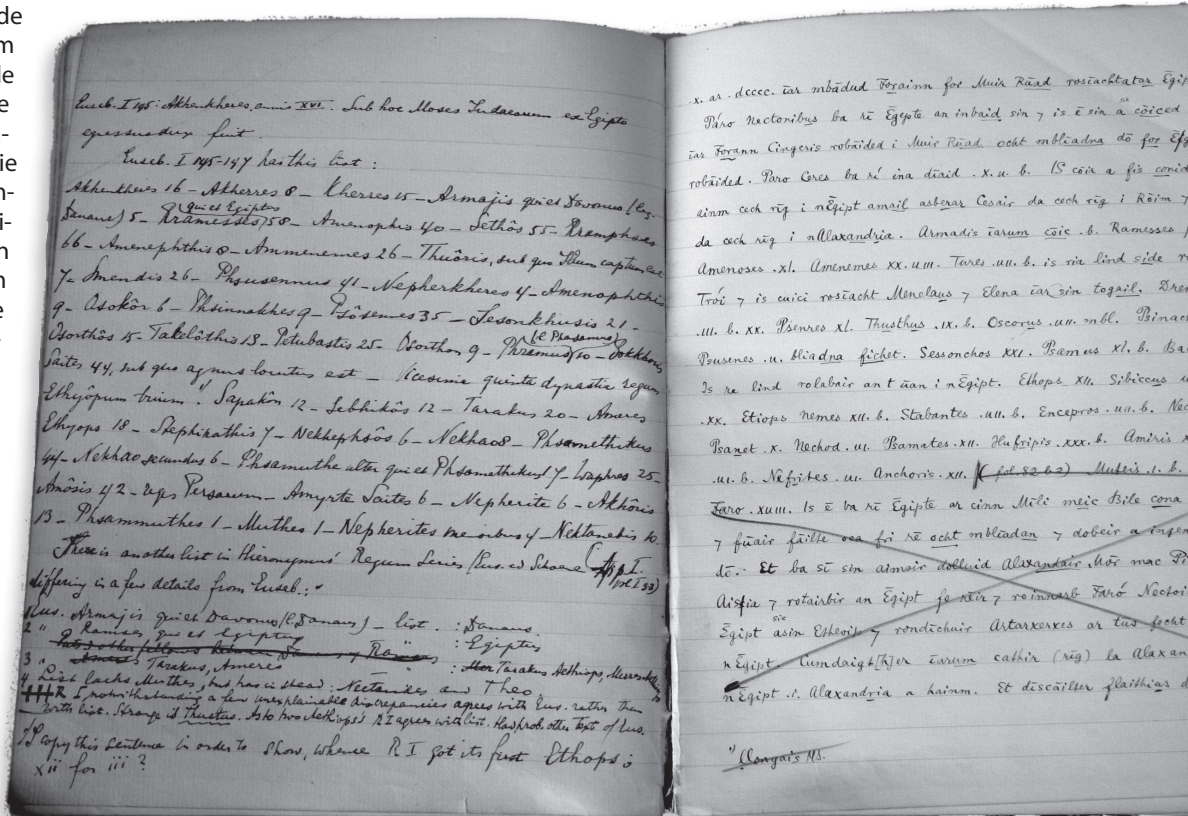 de
m
de
e
-
ie
n-
i-
n
n
e
-
Euseb. I 145: Akhenkheres, annis XVI. Sub hoc Moses Iudaeorum ex Egipto
egressus dux fuit
Euseb. I 145-147 has this list:
Akhenkheres 16 – Akherres 8 – Kherres 15 – Armajis qui et Davonus (leg.
qui et Egiptus
Danaus) 5 – Ramesses 58 – Amenophis 40 – Sethôs 55 – Rampheses
66 – Amenephthis 8 – Ammenemes 26 – Thuôris, sub quo Ilium captum est
7 – Smendis 26 – Phsusennus 41 – Nepherkheres 4 – Amenophthis
9 – Osokôr 6 – Phsinnakhes 9 – Psôsennes 35 – Sesonkhusis 21 –
(el Phasamus)
Osorthôs 15 – Takelôthis 13 – Petubastis 25 – Osorthon 9 – Phramus 10 – Bokkhoris
Saites 44, sub quo agnus locutus est – Vicesima quinta dynastia regum
Ethyôpum trium: Sapakôn 12 – Sebhikôs 12 – Tarakus 20 – Ameres
Ethyops 18 – Stephinathis 7 – Nekhephsôs 6 – Nekhao 8 – Phsamethikus
44 – Nekhao secundus 6 – Phsamuthe alter qui et Phsamethikus 17 – Waphres 25
Amôsis 42 – reges Persarum – Amyrte Saites 6 – Nepherite 6 – Akhôris
13 – Phsammuthes 1 – Muthes 1 – Nepherites mensibus 4 – Nektanebis 10
There is another list in Hieronymus' Regum Series (Eus. ed Schoene App I
vol I 33)
differing in a few details from Euseb.:
1 Eus. Armajis qui et Davonus (l. Danaus) – list. : Danaus.
2 " Ramses qui et Egyptus : Egiptus
3 " Tarakus, Ameres : Tarakus Aethiops, Merres
4 List lacks Muthes, but has instead: Nectanibes and Theo.
R I, notwithstanding a few unexplainable discrepancies agrees with Eus. rather than
with list. Strange is Thustus. As to two Aethiops's R I agrees with list. Has prob. other text of Eus.
1) I copy this sentence in order to show, whence R I got its first Ethops:
xii for iii?
.x. ar. dcccc. īar mbādud Forainn for Muir Rūad rosīachtatar Ēgip
Pāro Nectonibus ba rī Ēgepte an inbaid sin ⁊ is ē sin a cōiced
sic
īar Forann Cingeris robāided i Muir Rūad ocht mblīadna dō for Ēg
robāided. Paro Ceres ba rī ina dīaid .x.u. b. IS cōir a fis conid
ainm cech rīg i nĒgipt amail asberar Cesair da cech rīg i Rōim ⁊
da cech rīg i nAlaxandria. Armadis īarum cōic .b. Ramesses
Amenoses .xl. Amenemes xx.uiii. Tures .uii. b. is ria lind side
Trōi ⁊ is cuici rosīacht Menelaus ⁊ Elena īar sin togail. Dre
.iii. b. xx. Psenres xl. Thusthus .ix. b. Oscorus .uii. mbl. Psinac
Psusenes .u. blīadna fichet. Sessonchos xxi. Psamus xl. b. Ba
Is re lind rolabair an t-ūan i nĒgipt. Ethops. xii. Sibiccus
.xx. Etiops Nemes xii. b. Stabantes .uii. b. Encepros .uii. b. Nec
Psanet .x. Nechod .ui. Psamates .xii. Hufripis .xxx. b. Amiris
.ui. b. Nefrites .ui. Anchoris .xii. (fol. 82 b 2) Muteis .i. b.
Faro .xuiii. Is ē ba rī Ēgipte ar cinn Mīli meic Bile cona
⁊ fūair fāilte oca fri rē ocht mblīadan ⁊ dobeir a ingen
dō. Et ba sī sin aimsir dolluid Alaxandair Mōr mac Pi
Aissia ⁊ rotairbir an Ēgipt fo rēir ⁊ roinnarb Farō Nectoni
sic
Ēgipt asin Etheoip ⁊ rondichuir Artarxerxes ar tus fecht
nĒgipt. Cumdaigt[h]er īarum cathir (rīg) la Alaxan
nĒgipt .i. Alaxandria a hainm. Et discāilter flaithius
1) Clongais MS.